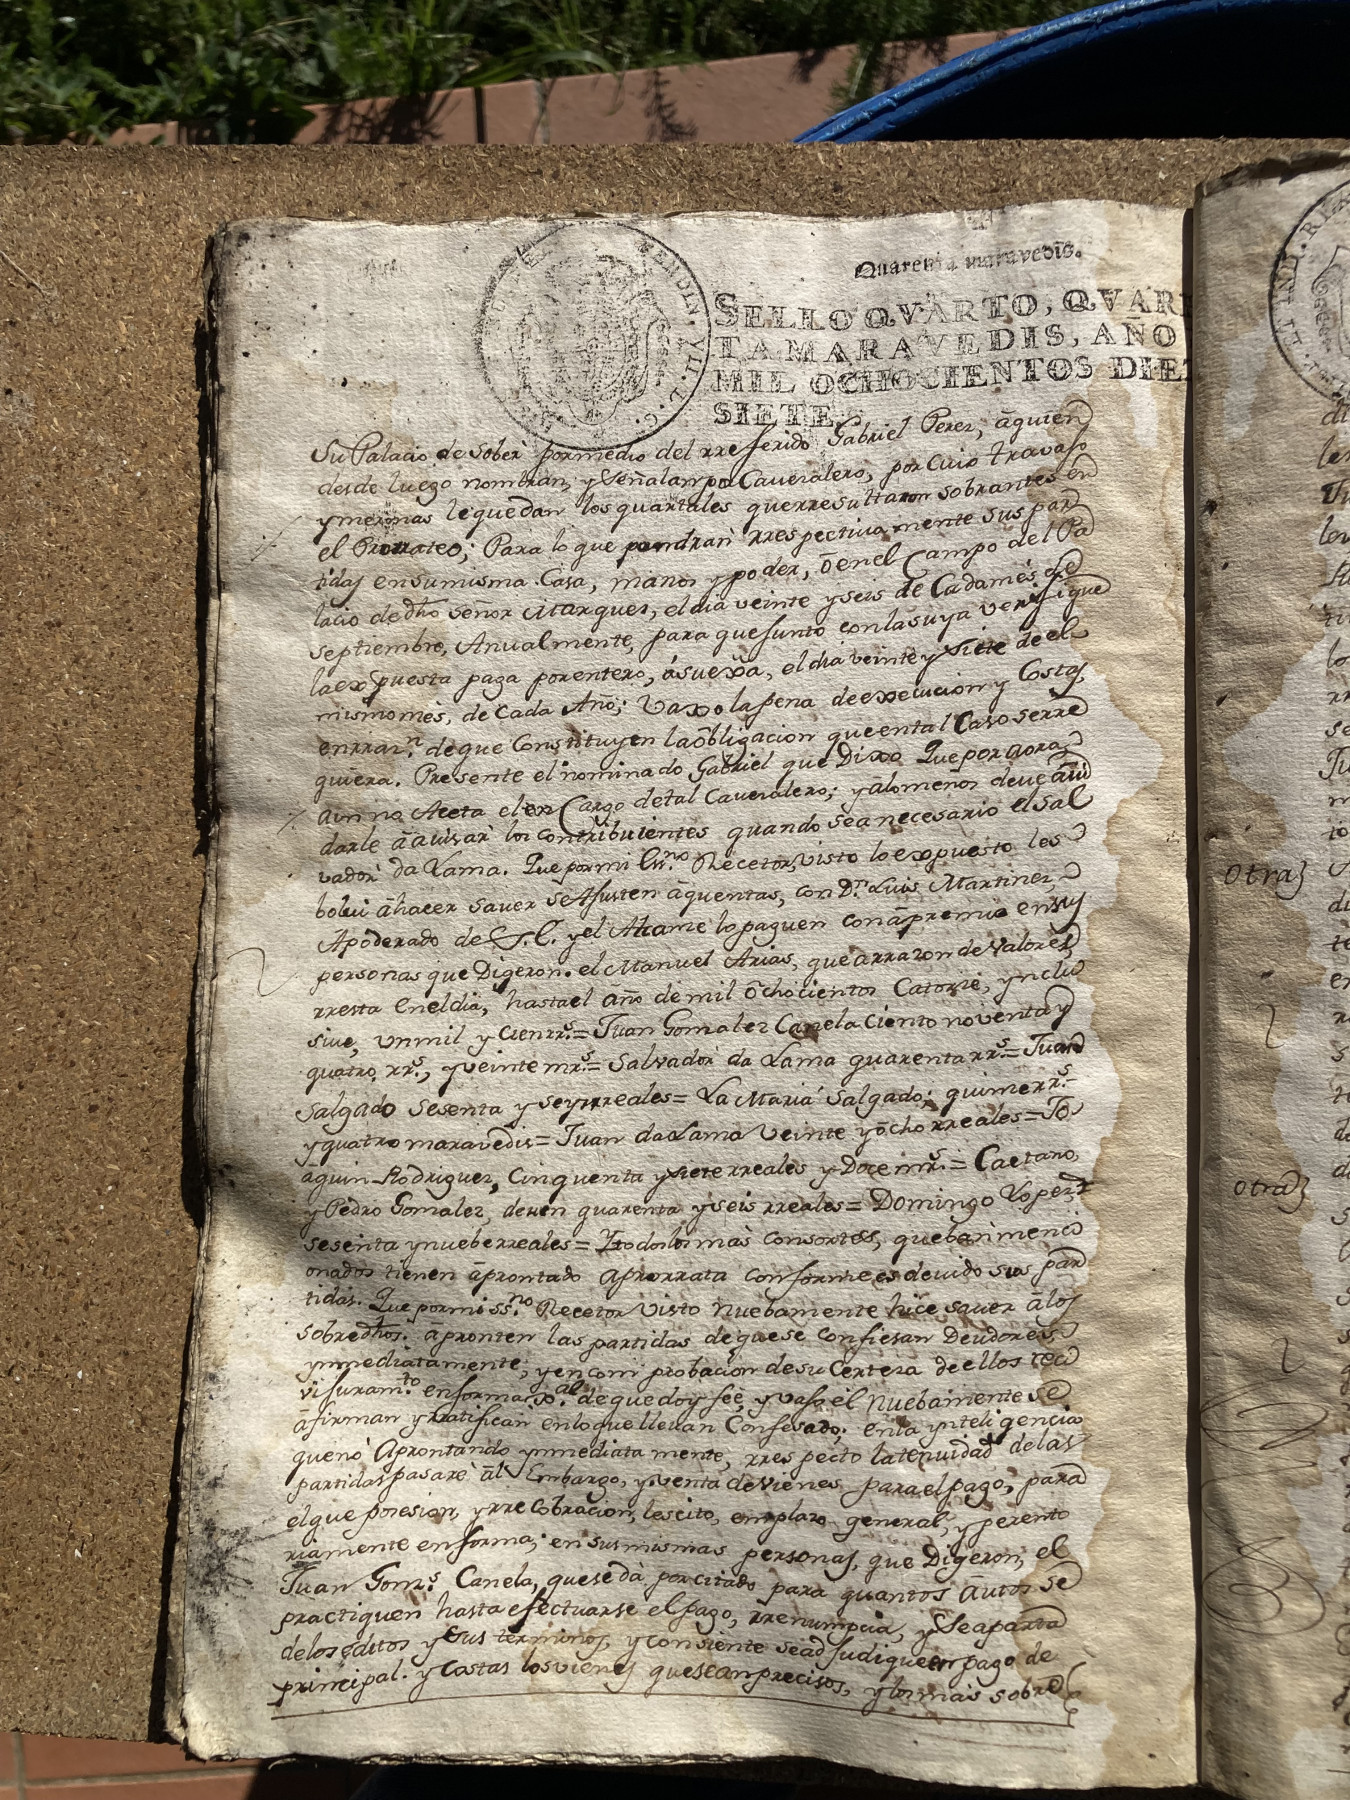 Quarenta maravedis.
SELLO QVARTO, QVARE
TAMARAVEDIS, AÑO
MIL OCHOCIENTOS DIEZ
SIETE.
FERDIN. VII. D. G.
Su Palacio de Sober por medio del rreferido Gabriel Perez, āquien
desde luego nombran, y señalan por Caveralero, por cuio travajo
y mermas le quedan los quartales querresultaron sobrantes en
el Prorrateo; Para lo que pondran rrespectiva mente sus par
tidas en su misma Casa, manos y poder, ō en el Campo del Pa
lacio de dho señor Marques, el dia veinte y seis de Cada mes de
septiembre, Anualmente, para que junto con la suya verifique
la expuesta paga por entero, á su exa, el dia veinte y siete de el
mismo mes, de Cada Año; vaxo la pena de execucion y Costas,
en rrar.n de que Constituyen la ōbligacion que en tal Caso serre
quiera. Presente el nominado Gabriel que Dixo Que por aora
aun no Aceta el en Cargo de tal Caveralero; y ālo menos deve āiu
darle āavisar los contribuientes quando sea necesario el Sal
vador da Lama. Que por mi Ss.no Recetor, visto lo expuesto les
bolvi āhacer saver se Ajusten āquentas, con D.n Luis Martinez,
Apoderado de S.E. y el Alcame lo paguen con āpremio en sus
personas que Digeron. el Manuel Arias, que arrazon de valores,
rresta en el dia, hasta el año de mil ōchocientos Catorze, ynclu
sive, un mil y Cien rr.s = Juan Gomalez Canela Ciento noventa y
quatro rr.s, y veinte mr.s = Salvador da Lama quarenta rr.s = Juan
Salgado sesenta y seys rreales = La Maria Salgado; quince rr.s
y quatro maravedis = Juan da Lama veinte y ōcho rreales = Jo
āquin Rodriguez, Cinquenta y siete rreales y Doce mr.s = Caetano,
y Pedro Gomalez, deven quarenta y seis rreales = Domingo Lopez
sesenta y nueberreales = Y todos los màs consortes, que bàn menci
onados tienen āprontado Aprorrata conforme es devido sus par
tidas. Que por mi ss.no Recetor visto nuebamente hice saver ālos
sobredhos. āpronten las partidas de que se confiesan Deudores
ymmediatamente; y en com probacion de su Certeza de ellos reci
vi juram.to en forma de que doy feé, y vajo èl Nuebamente se
āfirman y rratifican en lo que llevan Confesado; en la ynteligencia
que nò Aprontando ymmediata mente, rres pecto la tenuidad de las
partidas pasarè āl Embargo, y venta de vienes para el pago, para
el que posesion, y rre cobracion, les cito, emplazo general, y perento
riamente en forma; en sus mismas personas, que Digeron, el
Juan Gomz.s Canela, que se dà por citado para quantos āutos se
practiquen hasta efectuarse el pago, rrenumpcia, y se aparta
de los èditos y sus terminos, y consiente se adjudiquen en pago de
principal. y Costas los vienes que sean precisos, y los màs sobre
Otra}
Otra}